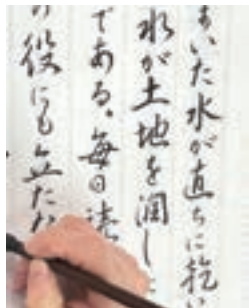 まいた水が直ちに乾い
水が土地を潤し
である。毎日
の役にも立たな